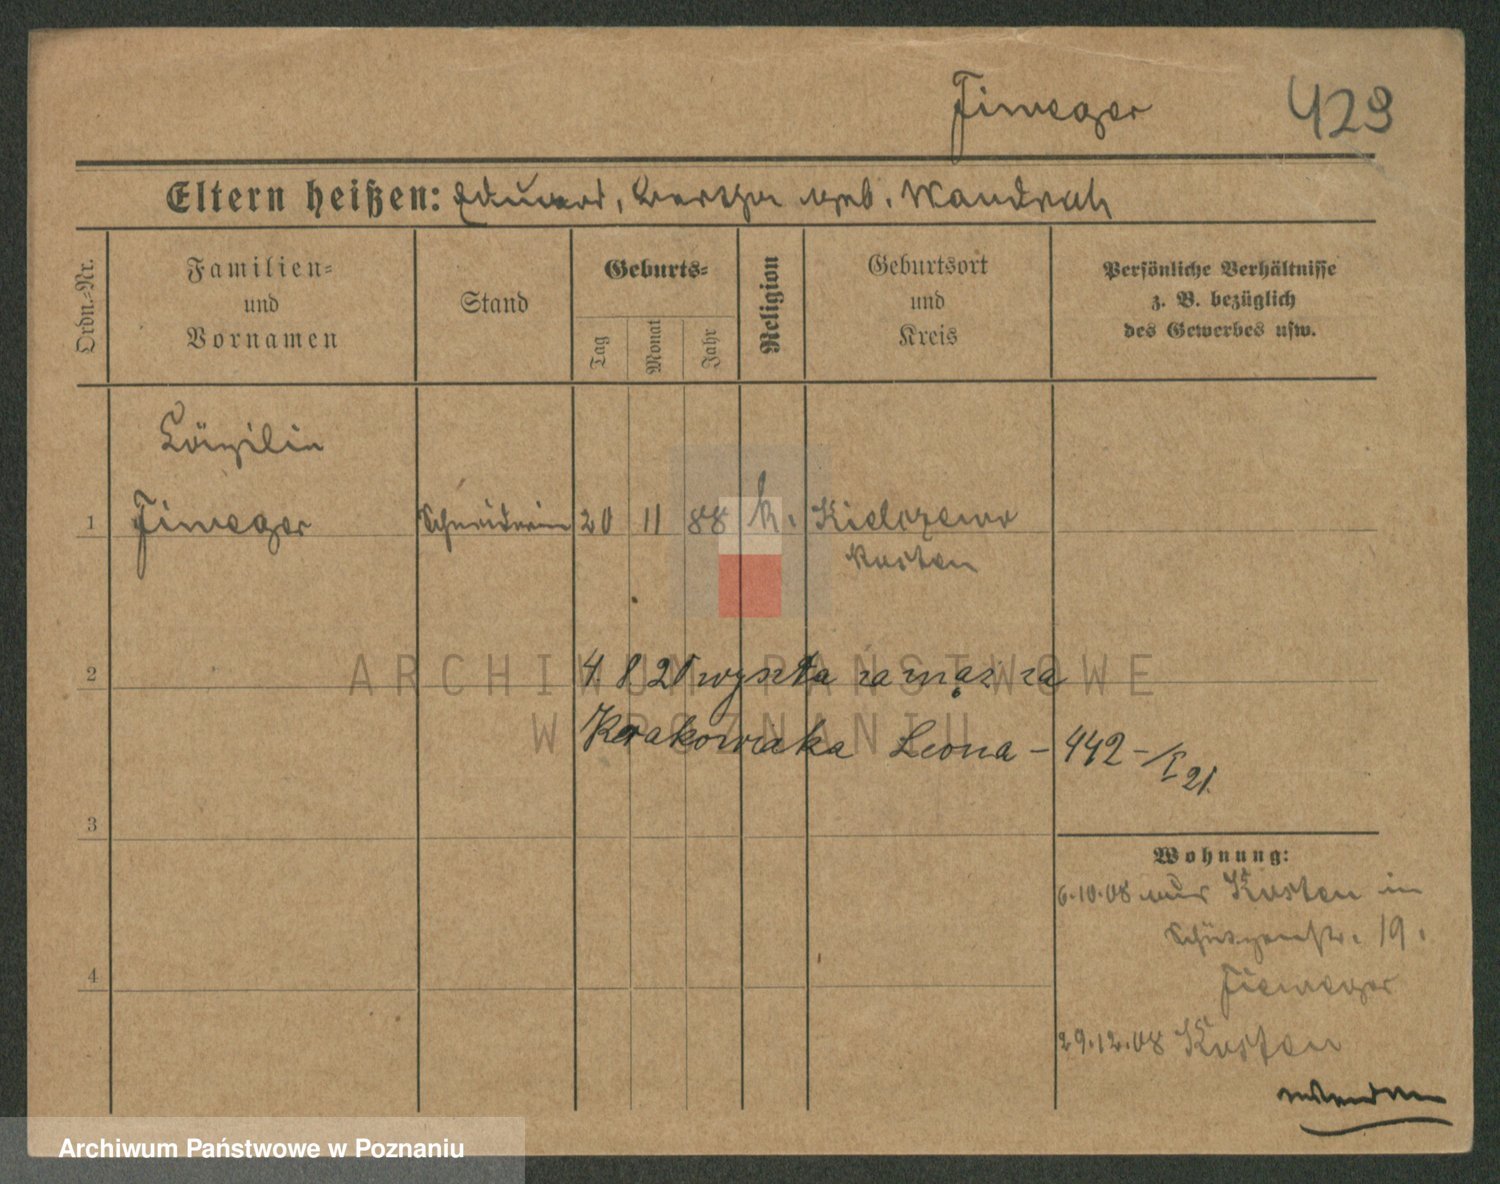 Fiweger 423
Eltern heißen: Eduard, Bertha geb. Wandrah
Ordn.-Nr.
Familien-
und
Vornamen
Stand
Geburts-
Tag
Monat
Jahr
Religion
Geburtsort
und
Kreis
Persönliche Verhältnisse
z. B. bezüglich
des Gewerbes usw.
Cäzilie
1 Fiweger Schneiderin 20 11 88 k. Kielczewo
Kosten
ARCHIWUM PAŃSTWOWE
W POZNANIU
2 4. 8 21 wyszła za mąż za
Krakowiaka Leona - 442 - K 21.
3
Wohnung:
6.10.08 aus Kosten in
Schützenstr. 19.
Fiweger
4
29.12.08 Kosten
wenden
Archiwum Państwowe w Poznaniu